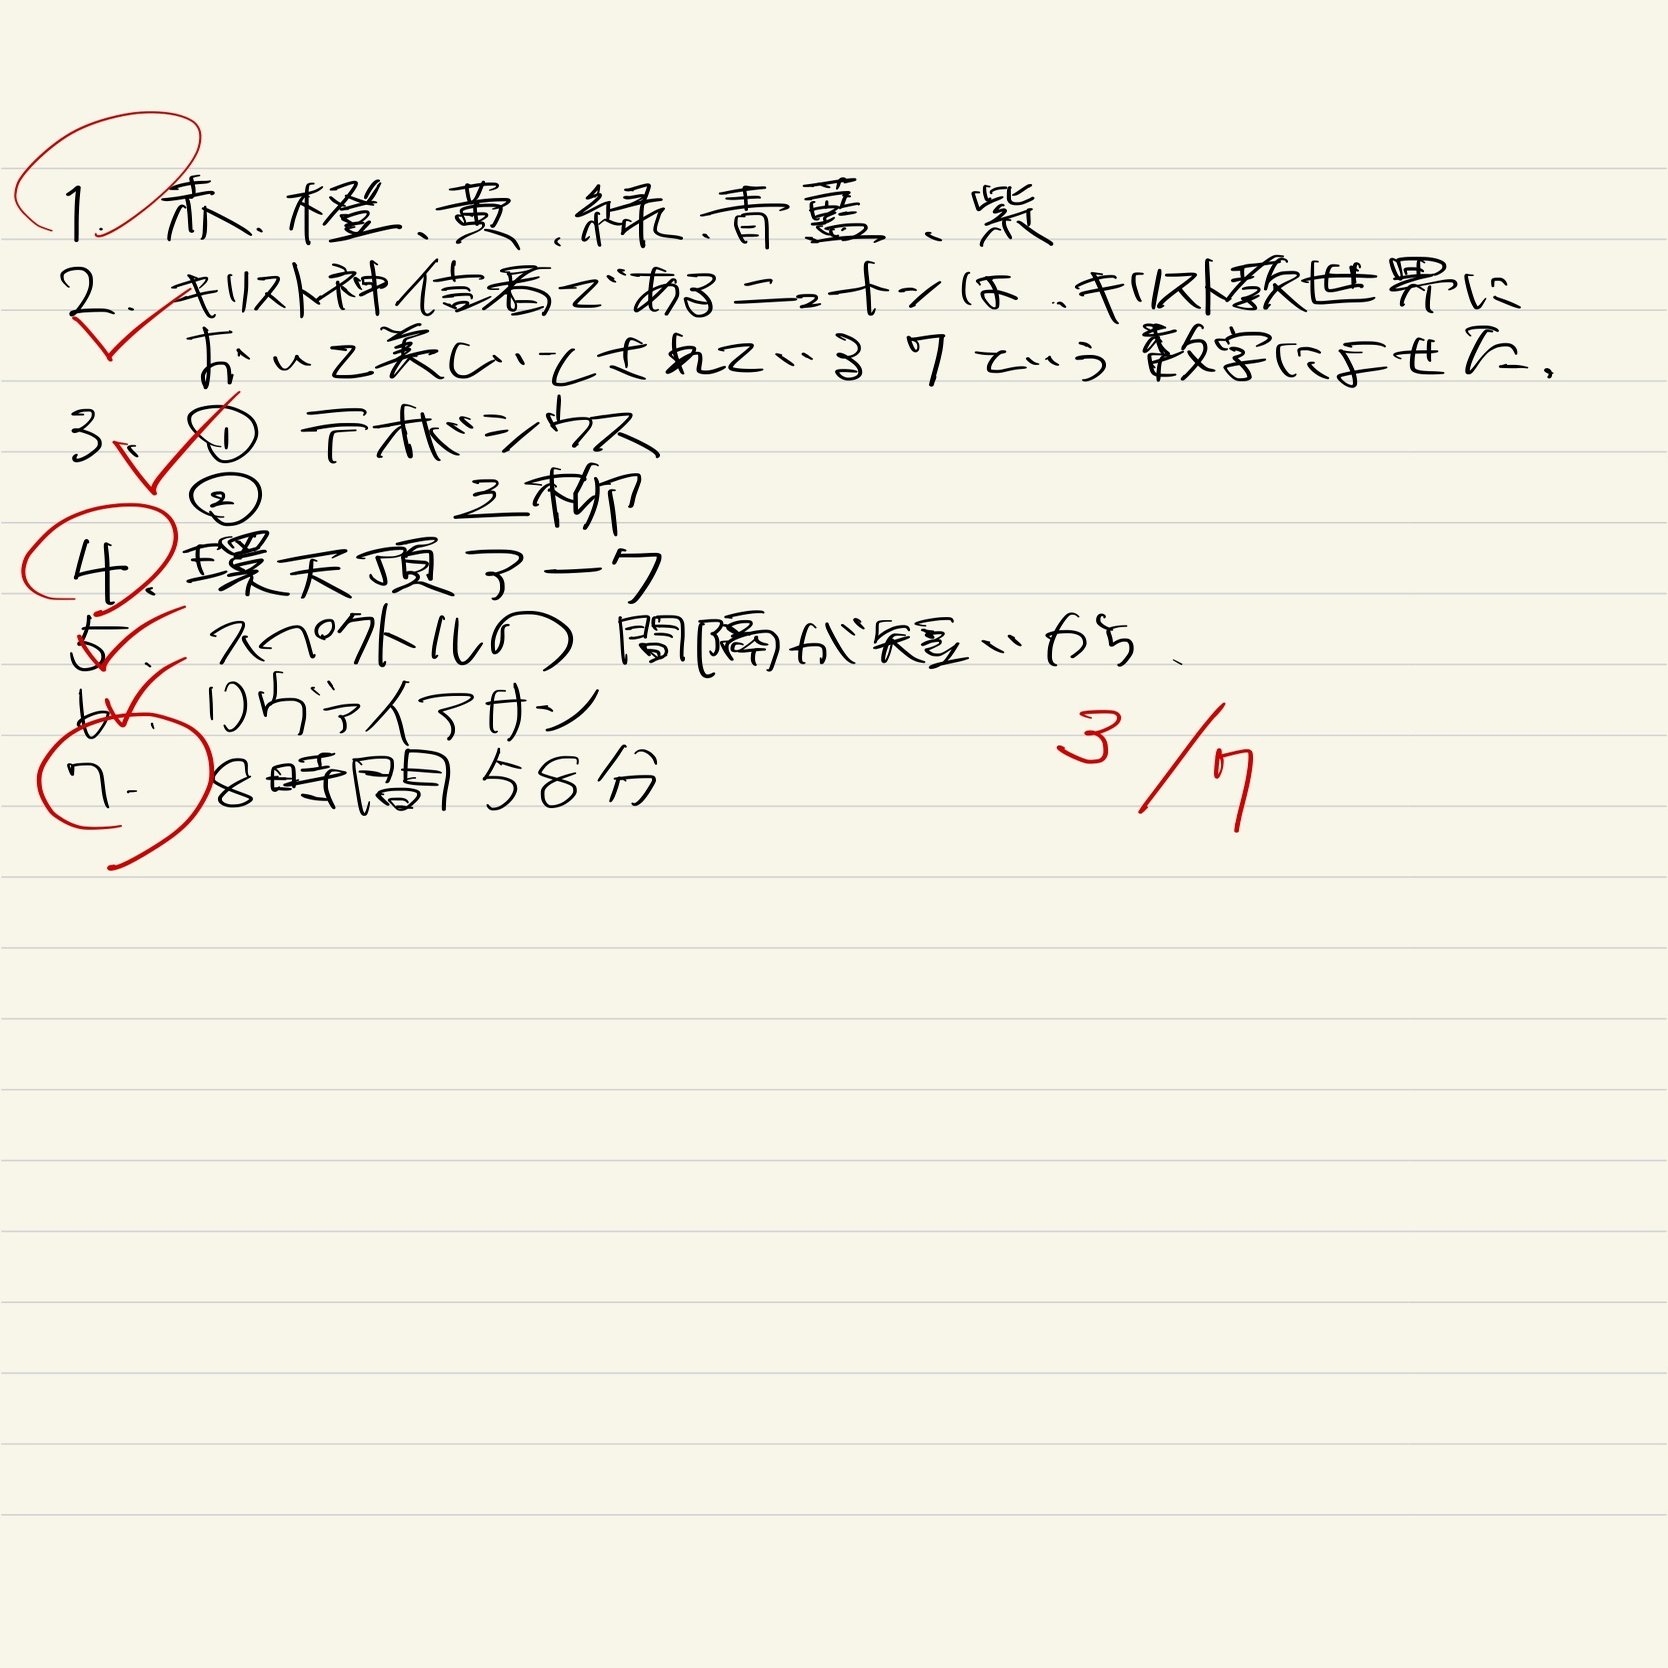 1. 赤、橙、黄、緑、青藍、紫
2. キリスト神信者であるニュートンは、キリスト教世界に
おいて美しいとされている7という数字によせた。
3、① テオドシウス
② 三柳
4. 環天頂アーク
5. スペクトルの間隔が短いから、
6. リヴァイアサン
7. 8時間58分
3/7